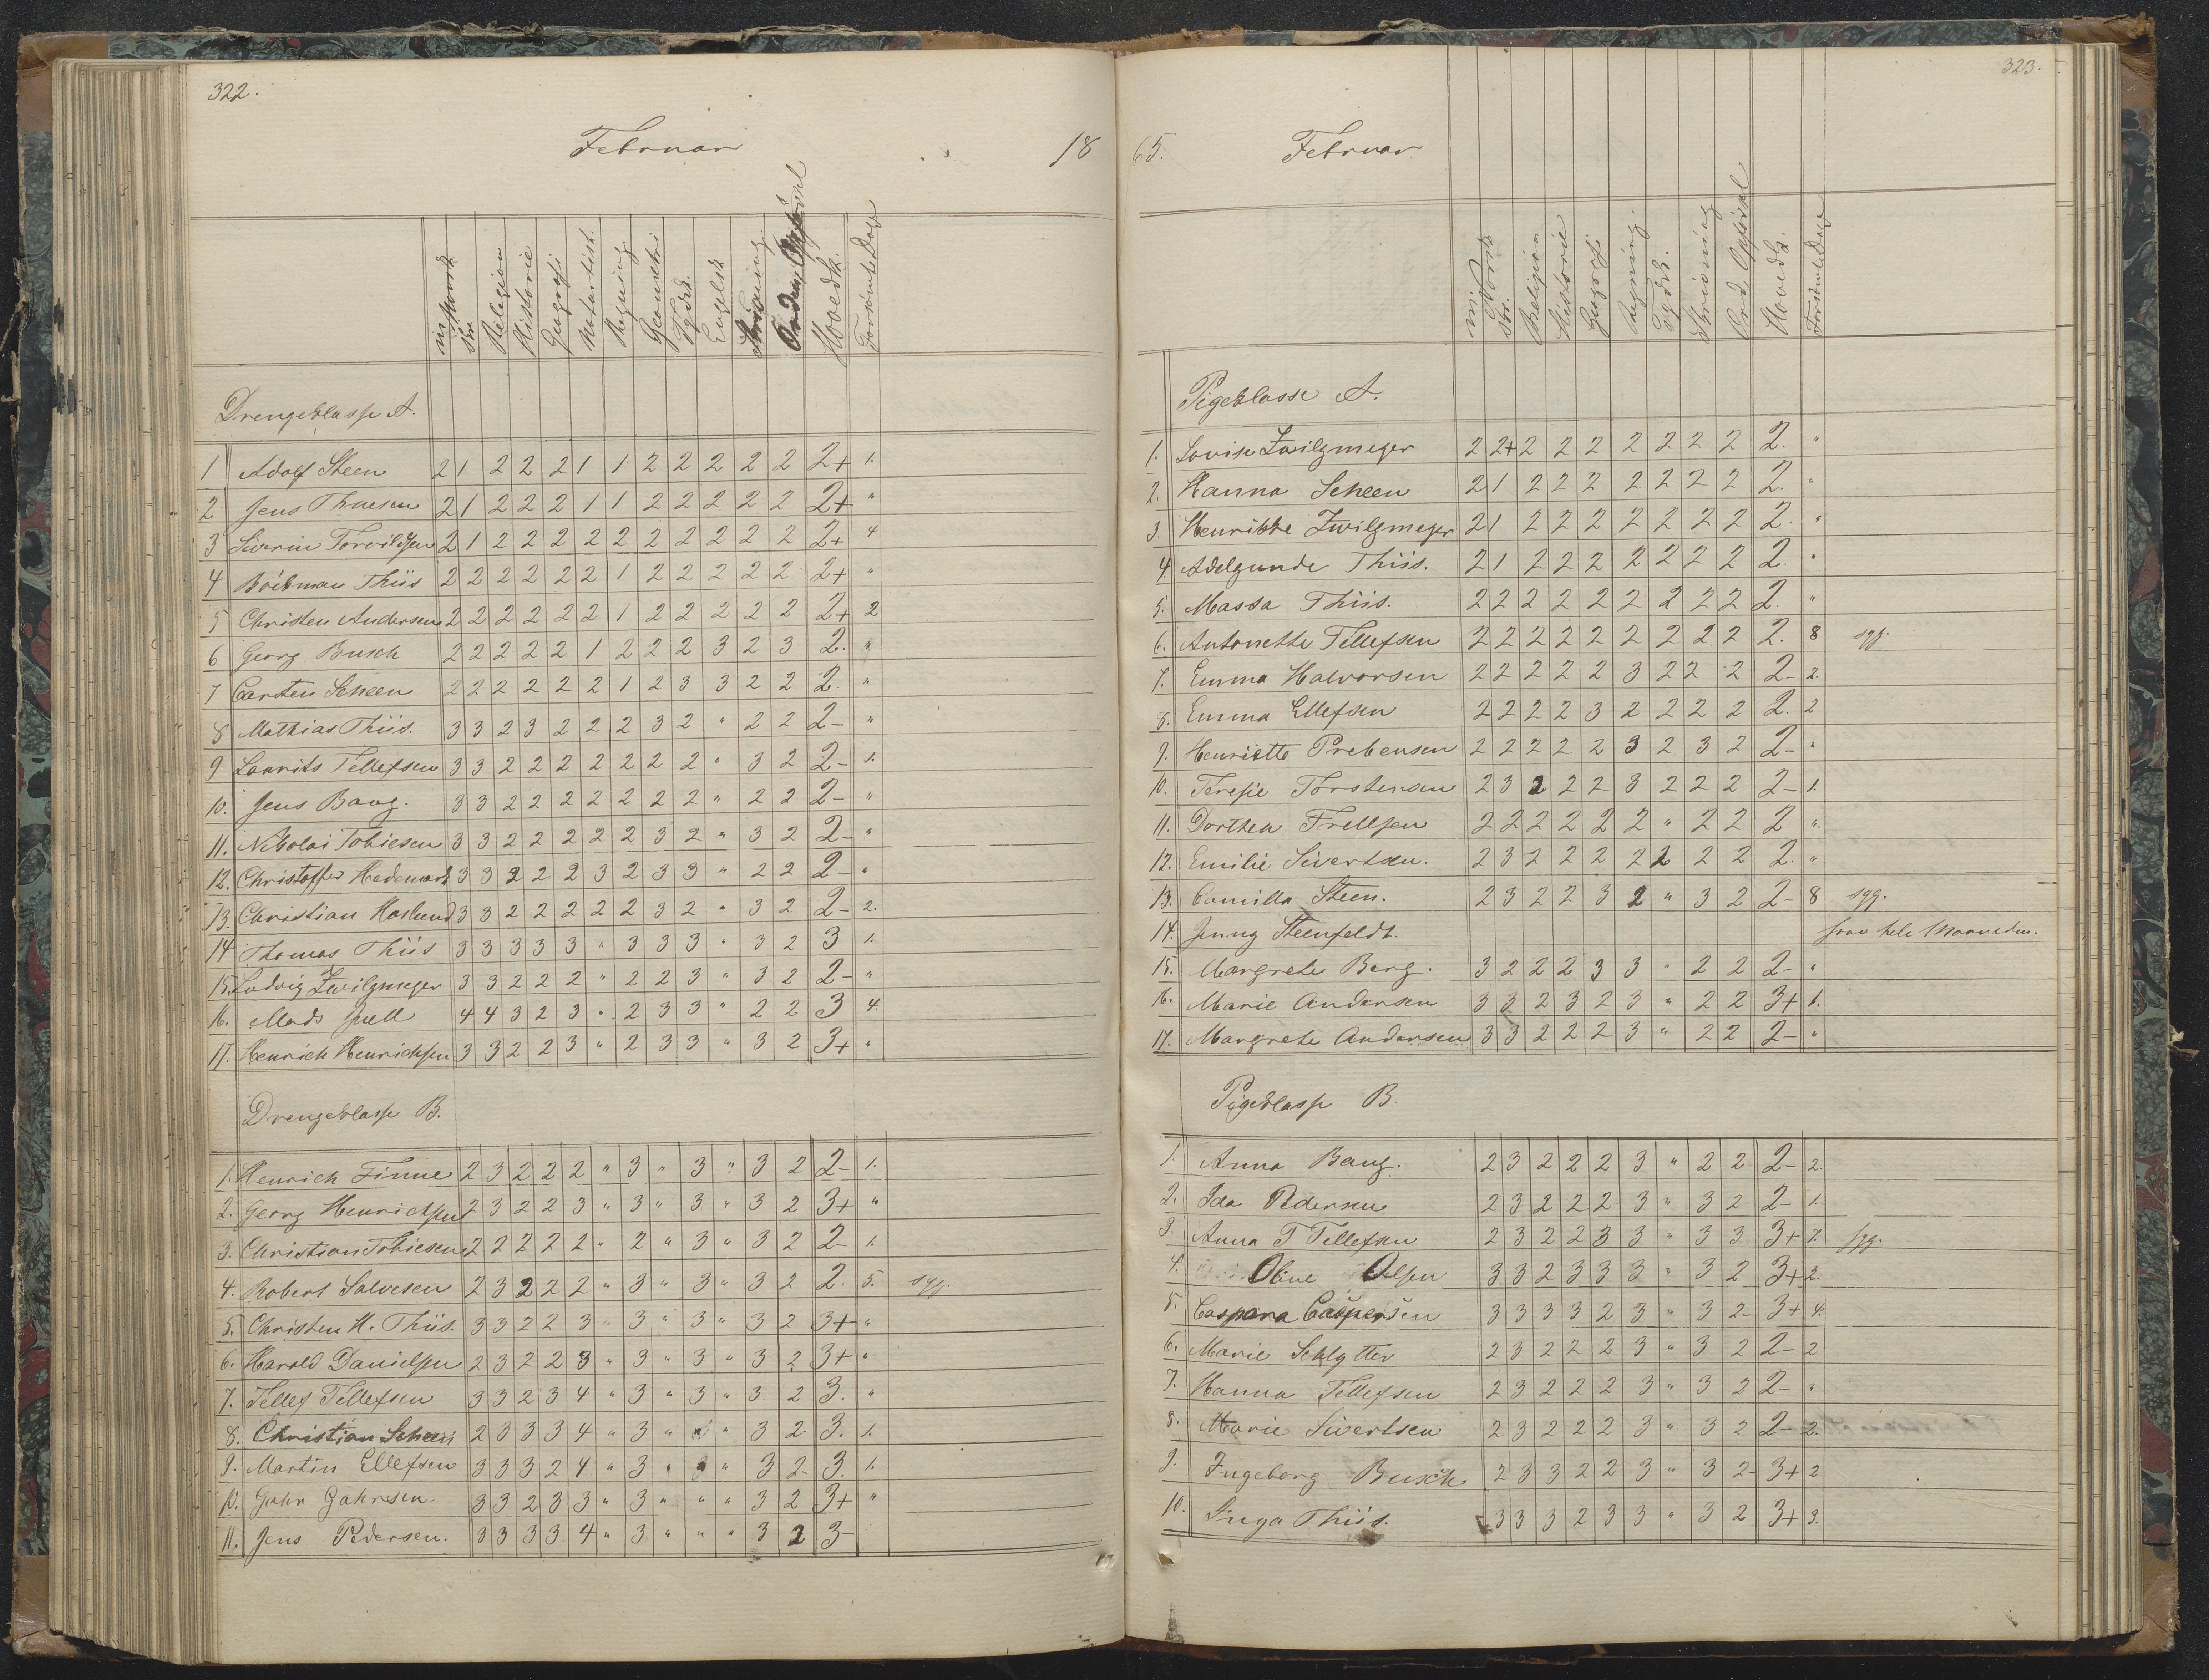 322.
Februar
18
mj Norsk
skr.
Religion
Historie
Geografi
Naturhist.
Regning.
Geometri
Tydsk.
Engelsk
Skrivning.
Orden, Opførsel
Hovedk.
Forsømte Dage
Drengeklasse A.
1 Adolf Steen 2 1 2 2 2 1 1 2 2 2 2 2 2+ 1.
2 Jens Thuesen 2 1 2 2 2 1 1 2 2 2 2 2 2+ "
3 Siverin Torvildsen 2 1 2 2 2 2 2 2 2 2 2 2 2+ 4
4 Boibman Thiis 2 2 2 2 2 2 1 2 2 2 2 2 2+ "
5 Christen Andersen 2 2 2 2 2 2 1 2 2 2 2 2 2+ 2
6 Georg Busch 2 2 2 2 2 1 2 2 2 3 2 3 2. "
7 Carsten Scheen 2 2 2 2 2 2 1 2 3 3 2 2 2. "
8 Mathias Thiis. 3 3 2 3 2 2 2 3 2 " 2 2 2- "
9 Laurits Tellefsen 3 3 2 2 2 2 2 2 2 " 3 2 2- 1.
10. Jens Bang. 3 3 2 2 2 2 2 2 2 " 2 2 2- "
11. Nikolai Tobiesen 3 3 2 2 2 2 2 3 2 " 3 2 2- "
12. Christoffer Hedemark 3 3 2 2 2 3 2 3 3 " 2 2 2- "
13. Christian Haslund 3 3 2 2 2 2 2 3 2 " 3 2 2- 2.
14 Thomas Thiis 3 3 3 3 3 " 3 3 3 " 3 2 3 1.
15. Ludvig Zwilgmeyer 3 3 2 2 2 " 2 2 3 " 3 2 2- "
16. Mads Juell 4 4 3 2 3 " 2 3 3 " 2 2 3 4.
17. Henrich Henrichsen 3 3 2 2 3 " 2 3 3 " 3 2 3+ "
Drengeklasse B.
1. Henrich Finne 2 3 2 2 2 " 3 " 3 " 3 2 2- 1.
2. Georg Henrichsen 2 3 2 2 3 " 3 " 3 " 3 2 3+ "
3. Christian Tobiesen 2 2 2 2 2 " 2 " 3 " 3 2 2- 1.
4. Robert Salvesen 2 3 2 2 2 " 3 " 3 " 3 2 2. 5. syg.
5. Christen H. Thiis. 3 3 2 2 3 " 3 " 3 " 3 2 3+ "
6. Harald Danielsen 2 3 2 2 3 " 3 " 3 " 3 2 3+ "
7. Tellef Tellefsen 3 3 2 3 4 " 3 " 3 " 3 2 3. "
8. Christian Scheen 2 3 3 3 4 " 3 " " 3 2 3. 1.
9. Martin Ellefsen 3 3 3 2 4 " 3 " " 3 2 3. 1.
10. Gahr Gahrsen. 3 3 2 3 3 " 3 " " " 3 2 3+ "
11. Jens Pedersen. 3 3 3 3 4 " 3 " " " 3 2 3-
323.
65.
Februar.
mj. Norsk
skr.
Religion
Historie
Geografi
Regning.
Tydsk.
Skrivning
Ord. Opførsel
Hovedk.
Forsømte Dage
Pigeklasse A.
1. Lovise Zwilgmeyer 2 2+ 2 2 2 2 2 2 2 2. "
2. Hanna Scheen 2 1 2 2 2 2 2 2 2 2. "
3. Henrikke Zwilgmeyer 2 1 2 2 2 2 2 2 2 2. "
4. Adelgunde Thiis. 2 1 2 2 2 2 2 2 2 2. "
5. Massa Thiis. 2 2 2 2 2 2 2 2 2 2. "
6. Antonette Tellefsen 2 2 2 2 2 2 2 2 2 2. 8 syg.
7. Emma Halvorsen 2 2 2 2 2 3 2 2 2 2- 2.
8. Emma Ellefsen 2 2 2 2 3 2 2 2 2 2. 2
9. Henriette Prebensen 2 2 2 2 2 3 2 3 2 2- "
10. Teresie Torstensen 2 3 2 2 2 3 2 2 2 2- 1.
11. Dorthea Frellsen 2 2 2 2 2 2 " 2 2 2 "
12. Emilie Sivertsen. 2 3 2 2 2 2 2 2 2 2. "
13. Camilla Steen. 2 3 2 2 3 2 " 3 2 2- 8 syg.
14. Jenny Steenfeldt. frav. hele Maaneden.
15. Margrete Berg. 3 2 2 2 3 3 " 2 2 2- "
16. Marie Andersen 3 3 2 3 2 3 " 2 2 3+ 1.
17. Margrete Andersen 3 3 2 2 2 3 " 2 2 2- "
Pigeklasse B.
1. Anna Bang. 2 3 2 2 2 3 " 2 2 2- 2.
2. Ida Pedersen 2 3 2 2 2 3 " 3 2 2- 1.
3. Anna T Tellefsen 2 3 2 2 3 3 " 3 3 3+ 7. syg.
4. Oline Olsen 3 3 2 3 3 3 " 3 2 3+ 2.
5. Caspara Caspersen 3 3 3 3 2 3 " 3 2 3+ 4.
6. Marie Schlytter 2 3 2 2 2 3 " 3 2 2- 2
7. Hanna Tellefsen 2 3 2 2 2 3 " 3 2 2- "
8. Marie Sivertsen 2 3 2 2 2 3 " 3 2 2- 2.
9. Ingeborg Busch. 2 3 3 2 2 3 " 3 2 3+ 2
10. Inga Thiis. 3 3 3 2 3 3 " 3 2 3+ 3.